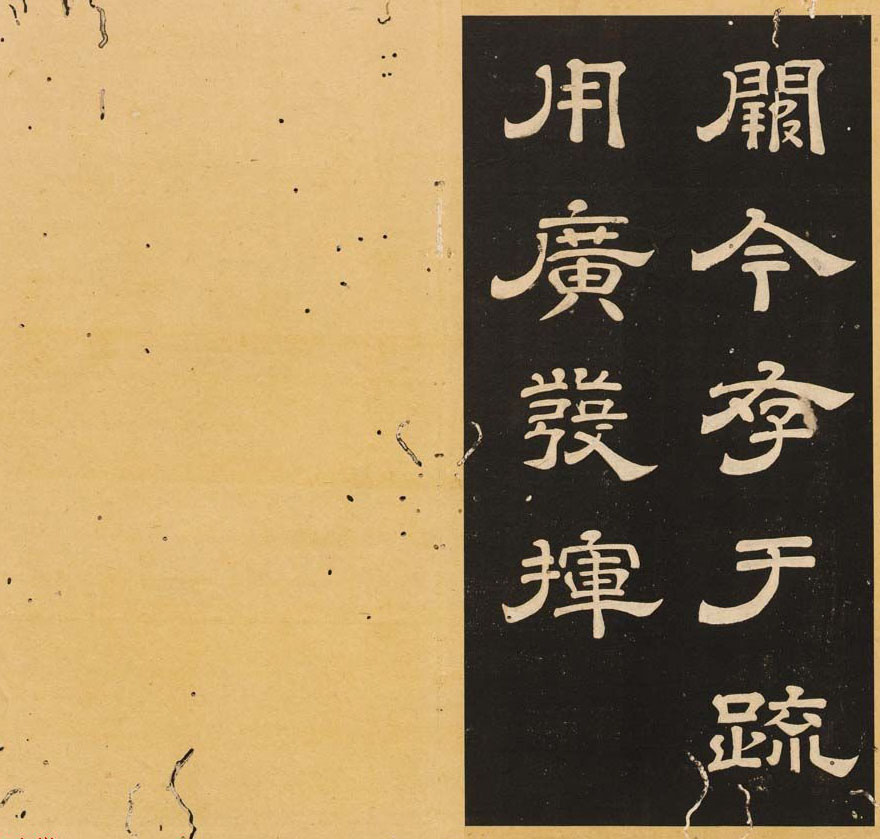 闕今存于疏
用廣發揮